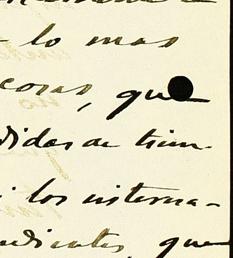 lo mas
cosas, que
didas de tiem-
los interna-
dientes, que